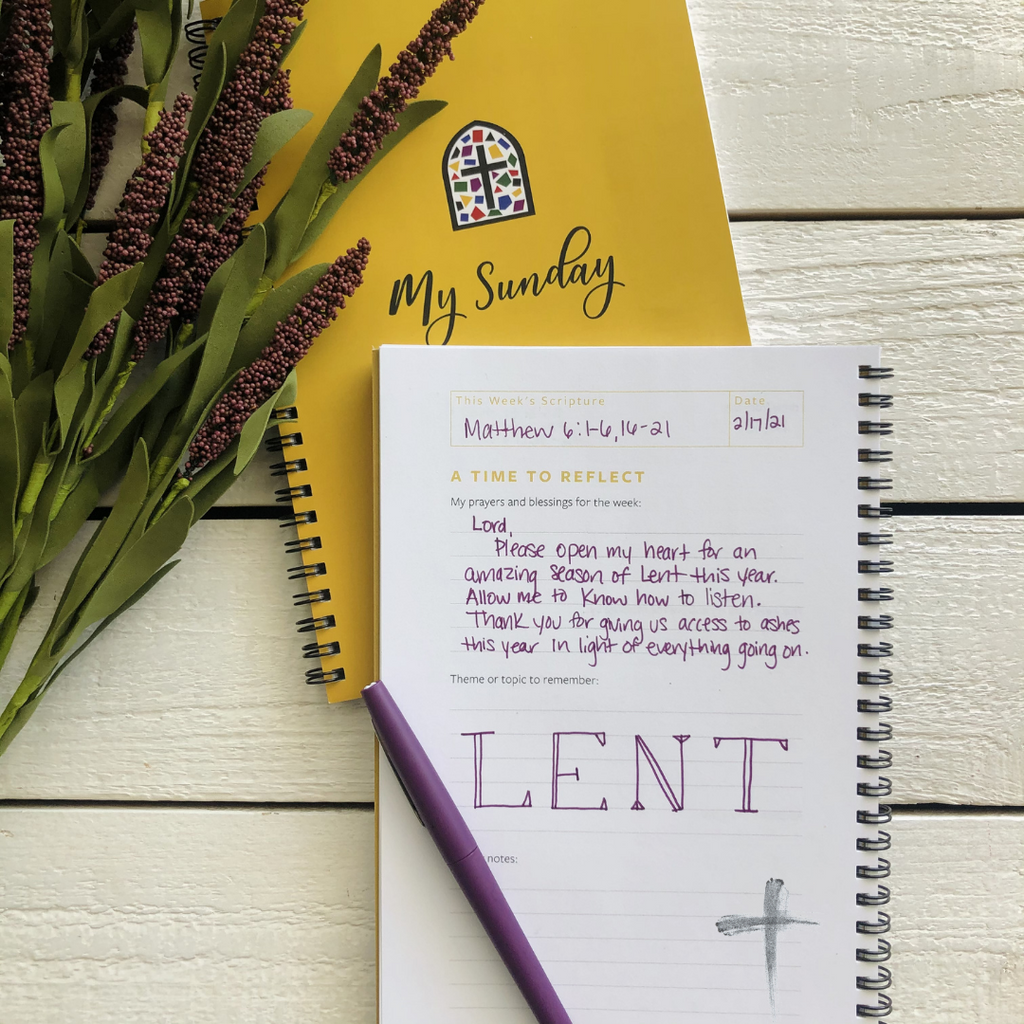 My Sunday
This Week's Scripture
Date
Matthew 6:1-6,16-21
2/17/21
A TIME TO REFLECT
My prayers and blessings for the week:
Lord,
Please open my heart for an
amazing season of Lent this year.
Allow me to know how to listen.
Thank you for giving us access to ashes
this year in light of everything going on.
Theme or topic to remember:
LENT
notes: